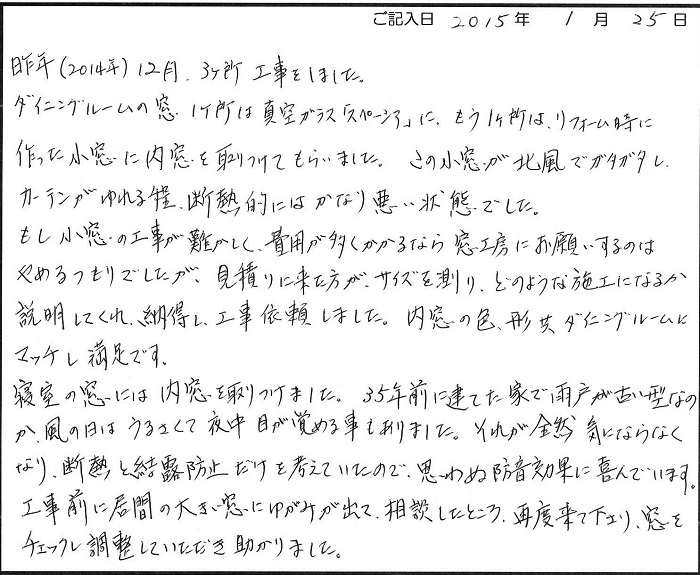 ご記入日 2015年 1月 25日
昨年(2014年)12月、3ヶ所 工事をしました。
ダイニングルームの窓 1ヶ所は真空ガラス「スペーシア」に、もう1ヶ所は、リフォーム時に
作った小窓に内窓を取りつけてもらいました。この小窓が北風でガタガタし、
カーテンがゆれる程、断熱的にはかなり悪い状態でした。
もし小窓の工事が難かしく、費用が多くかかるなら窓工房にお願いするのは
やめるつもりでしたが、見積りに来た方が、サイズを測り、どのような施工になるか
説明してくれ、納得し、工事依頼しました。内窓の色、形共ダイニングルームに
マッチし満足です。
寝室の窓には内窓を取りつけました。35年前に建てた家で雨戸が古い型なの
か、風の日はうるさくて夜中目が覚める事もありました。それが全然気にならなく
なり、断熱と結露防止だけを考えていたので、思わぬ防音効果に喜んでいます。
工事前に居間の大きい窓にゆがみが出て、相談したところ、再度来て下さり、窓を
チェックし調整していただき助かりました。